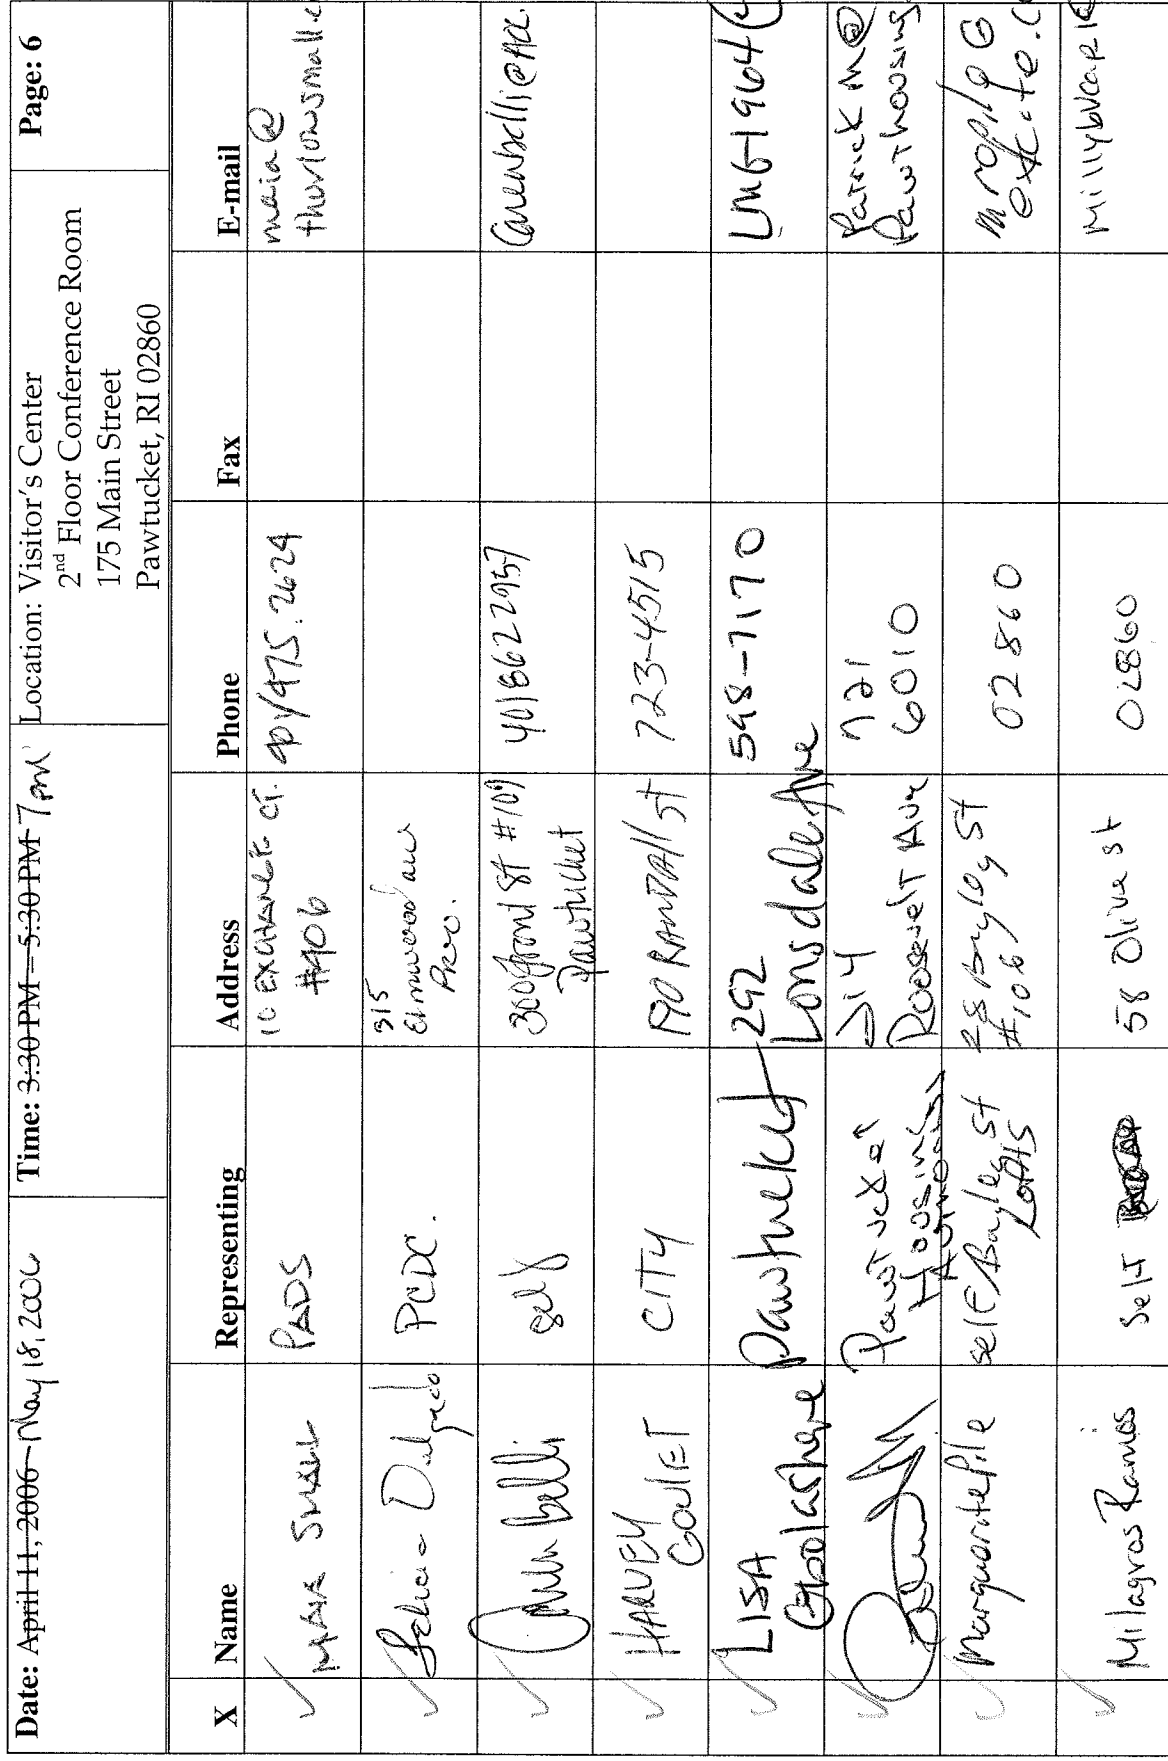 Date: April 11, 2006 May 18, 2006
Time: 3:30 PM – 5:30 PM 7 pm
Location: Visitor's Center
2nd Floor Conference Room
175 Main Street
Pawtucket, RI 02860
Page: 6
X Name Representing Address Phone Fax E-mail
✓ MAIA SMALL PADS 10 EXCHANGE CT. #406 401/475.2624 maia@
thurlowsmall.c
✓ Felicia Delgado PCDC. 315
Elmwood ave
Prov.
✓ self 300 front St #109
Pawtucket
4018622957
✓ HARVEY
GOULET
CITY 190 RANDAll St 723-4515
✓ LISA
Pawtucket 292
Lonsdale Ave
598-7170 LMG1964
✓ Pawtucket
Housing
Authority
214
Roosevelt Ave
721
6010
Patrick M@
Pawthousing
✓ Marguerite Pile self/Bayley St
Lofts
28 Bayley St
#106
02860
✓ Milagros Ramos Self 58 Olive st 02860